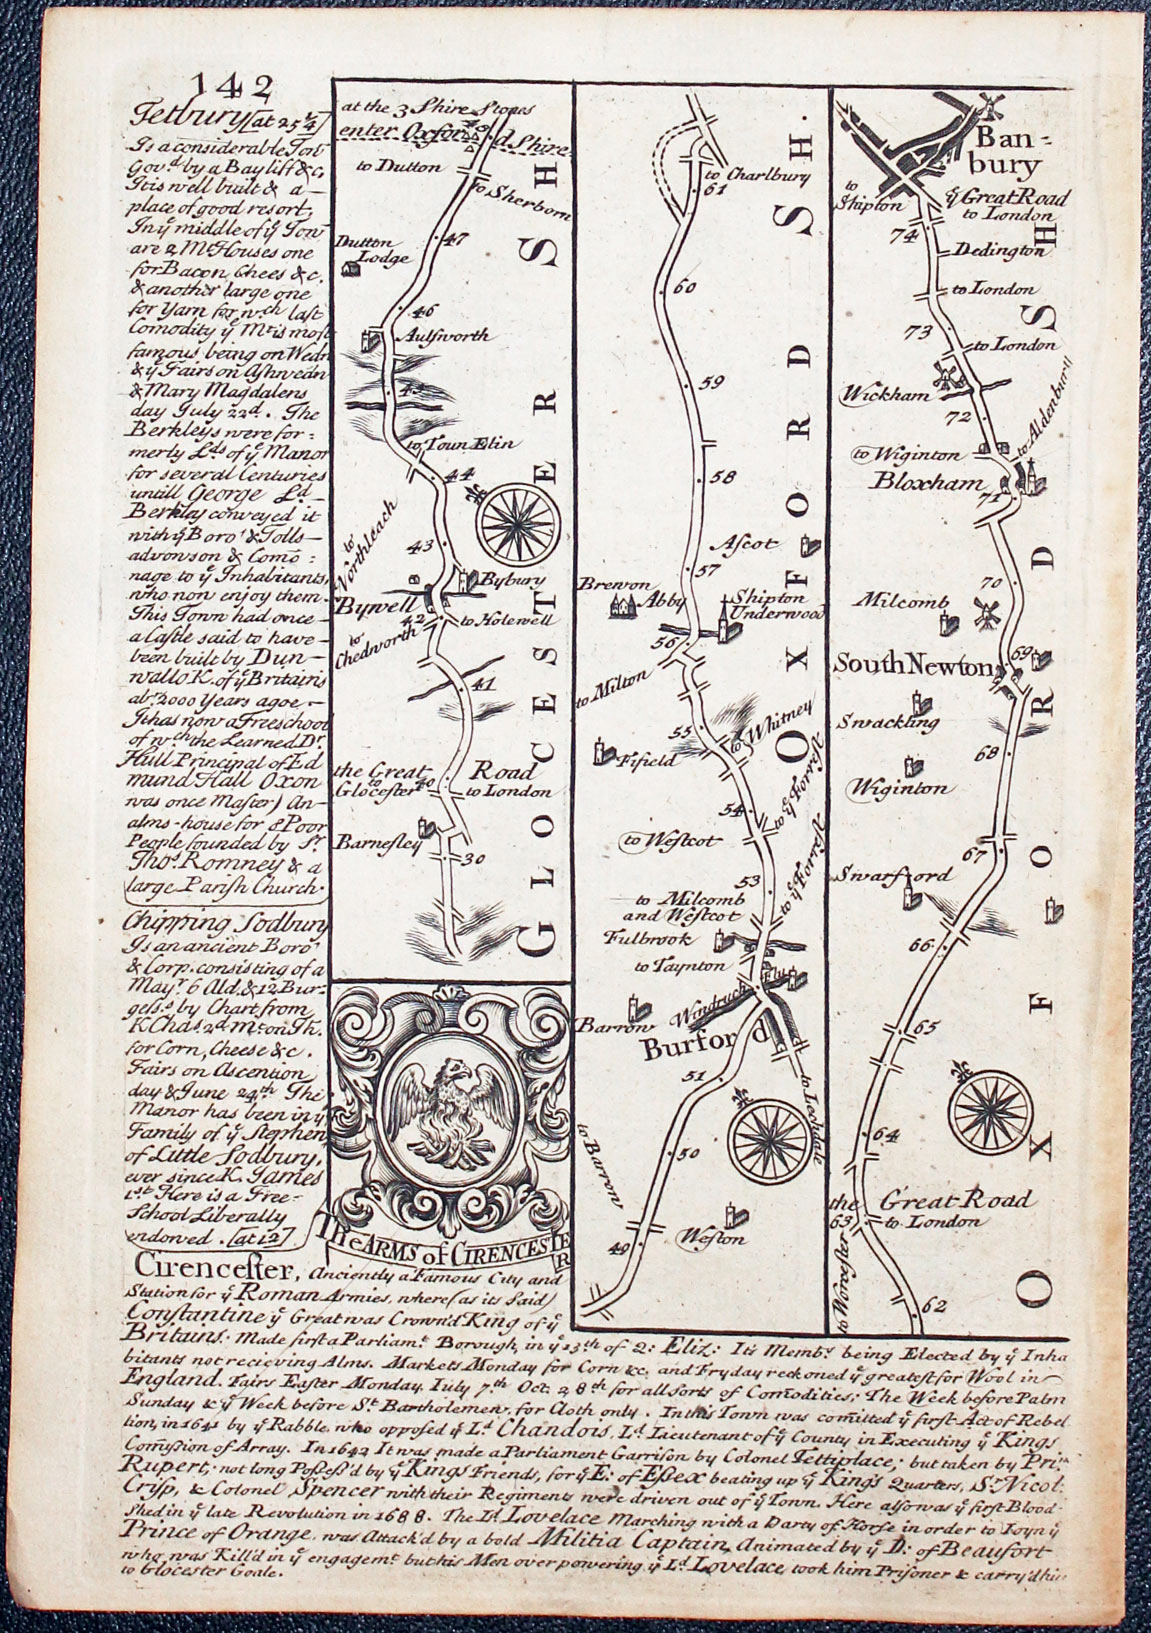 142
Tetbury [at 25¼]
Is a considerable Ton
Govd. by a Bayliff &c.
It is well built & a
place of good resort,
In ẏ middle of ẏ Ton
are 2 Mt Houses one
for Bacon, Chees &c.
& another large one
for Yarn for wch last
Comodity ẏ Mt is most
famous being on Wedn
& ẏ Fairs on Ashwedn
& Mary Magdalens
day July 22d. The
Berkleys were for=
merly Lds of ẏe Manor
for several Centuries
untill George Ld
Berklay conveyed it
with ẏ Boro' & Tolls
advowson & Como=
nage to ẏ Inhabitants,
who now enjoy them.
This Town had once
a Castle said to have
been built by Dun-
wallo K. of ẏ Britains
abt. 2000 Years agoe.
It has now a Freeschool
of wch the Learned Dr.
Hull Principal of Ed
mund Hall Oxon
was once Master) An
alms-house for 8 Poor
People founded by Sr.
Thos. Romney & a
large Parish Church.
Chipping Sodbury
Is an ancient Boro'
& Corp. consisting of a
Mayr. 6 Ald. & 12 Bur=
gess.s by Chart from
K. Chas. 2d Mt on Th.
for Corn, Cheese &c.
Fairs on Ascention
day & June 24th The
Manor has been in ẏ
Family of ẏ Stephen
of Little Sodbury,
ever since K. James
1st. Here is a Free=
School Liberally
endowed. [at 12]
at the 3 Shire Stones
enter Oxford Shire
to Dutton
to Sherborn
47
Dutton
Lodge
46
Aulsworth
45
to Town Elin
44
to Northleach
43
Bybury
Bywell
42
to Holewell
to Chedworth
41
the Great Road
to Glocester 40 to London
Barnesley
30
GLOCESTER SH
The ARMS of CIRENCESTER
to Charlbury
61
60
59
58
Ascot
57
Brewon
Abby
Shipton
Underwood
56
to Milton
55
to Whitney
Fifield
54
to ẏe Forrest
to Westcot
53
to ẏe Forrest
to Milcomb
and Westcot
Fulbrook
to Taynton
Flu
Windruch
Barrow
Burford
51
to Lechlade
to Barrow
50
49
Weston
OXFORD SH.
Banbury
to
Shipton
ẏ Great Road
to London
74
Dedington
to London
73
to London
Wickham
72
to Aldenburll
to Wiginton
Bloxham
71
70
Milcomb
69
South Newton
Swackling
68
Wiginton
67
Swarford
66
65
64
the Great Road
63 to London
to Worcester
62
OXFORD SH
Cirencester, Anciently a Famous City and
Station for ẏ Roman Armies, where (as its Said)
Constantine ẏ Great was Crown'd King of ẏ
Britains: Made first a Parliamt. Borough, in ẏ 13th of Q: Eliz: It's Membrs being Elected by ẏ Inha
bitants not recieving Alms. Markets Monday for Corn &c. and Fryday reckoned ẏ greatest for Wool in
England. Fairs Easter Monday, July 7th Oct. 28th for all sorts of Comodities; The Week before Palm
Sunday & ẏ Week before St. Bartholemew, for Cloth only. In this Town was comitted ẏ first Act of Rebel
lion, in 1641 by ẏ Rabble, who opposed ẏ Ld. Chandois, Ld. Lieutenant of ẏ County in Executing ẏ Kings
Comission of Array. In 1642 It was made a Parliament Garrison by Colonel Fettiplace; but taken by Prin
Rupert; not long Possess'd by ẏ Kings Friends, for ẏ E: of Essex beating up ẏ King's Quarters, Sr. Nicol:
Crisp, & Colonel Spencer with their Regiments were driven out of ẏ Town. Here also was ẏ first Blood
shed in ẏ late Revolution in 1688. The Ld. Lovelace Marching with a Party of Horse in order to Ioyn ẏ
Prince of Orange, was Attack'd by a bold Militia Captain, Animated by ẏ D: of Beaufort
who was Kill'd in ẏ engagemt but his Men overpowering ẏ Ld. Lovelace, took him Prisoner & carry'd him
to Glocester Goale.